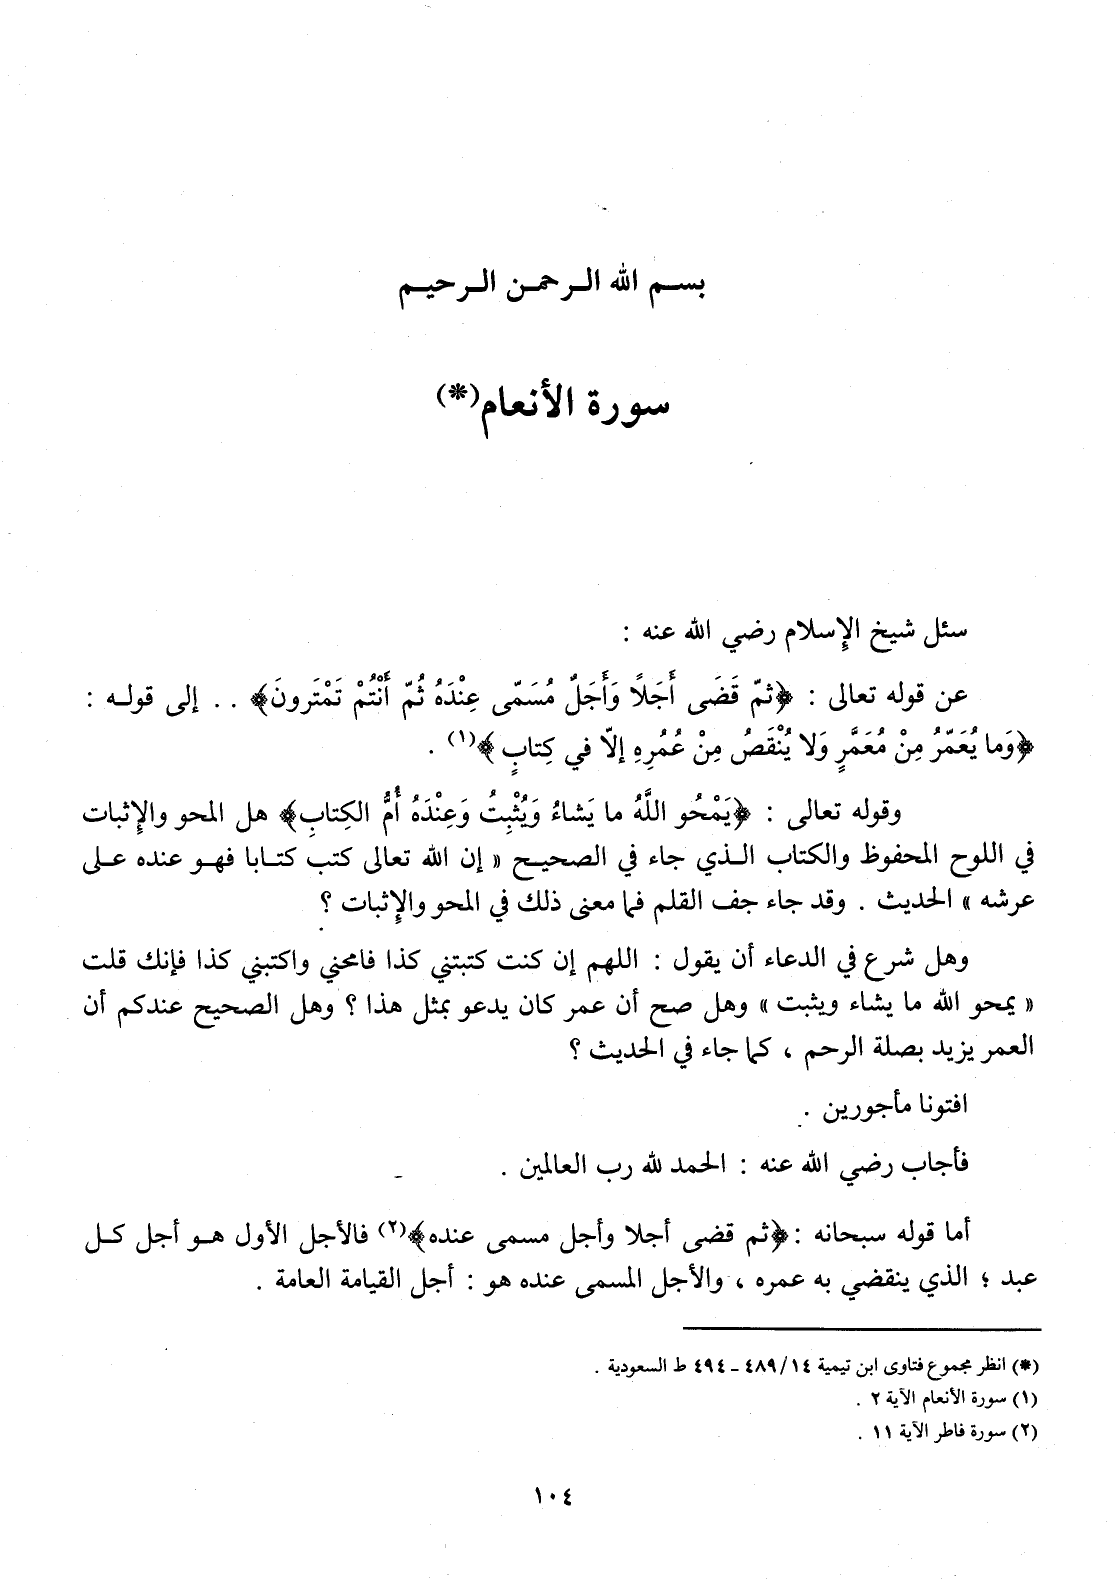 بسم الله الرحمن الرحيم
سورة الأنعام(*)
سئل شيخ الإسلام رضي الله عنه :
عن قوله تعالى : ﴿ثمّ قَضَى أَجَلًا وَأَجَلٌ مُسَمّى عِنْدَهُ ثُمّ أَنْتُمْ تَمْتَرونَ﴾ . . إلى قوله :
﴿وَما يُعَمّرُ مِنْ مُعَمَّرٍ وَلا يُنْقَصُ مِنْ عُمُرِهِ إلاّ في كِتابٍ﴾(١) .
وقوله تعالى : ﴿يَمْحُو اللَّهُ ما يَشاءُ وَيُثْبِتُ وَعِنْدَهُ أُمُّ الكِتابِ﴾ هل المحو والإثبات
في اللوح المحفوظ والكتاب الذي جاء في الصحيح « إن الله تعالى كتب كتابا فهو عنده على
عرشه » الحديث . وقد جاء جف القلم فما معنى ذلك في المحو والإثبات ؟
وهل شرع في الدعاء أن يقول : اللهم إن كنت كتبتني كذا فامحني واكتبني كذا فإنك قلت
« يمحو الله ما يشاء ويثبت » وهل صح أن عمر كان يدعو بمثل هذا ؟ وهل الصحيح عندكم أن
العمر يزيد بصلة الرحم ، كما جاء في الحديث ؟
افتونا مأجورين .
فأجاب رضي الله عنه : الحمد لله رب العالمين .
أما قوله سبحانه : ﴿ثم قضى أجلا وأجل مسمى عنده﴾(٢) فالأجل الأول هو أجل كل
عبد ؛ الذي ينقضي به عمره ، والأجل المسمى عنده هو : أجل القيامة العامة .
(*) انظر مجموع فتاوى ابن تيمية ٤٨٩/١٤ ـ ٤٩٤ ط السعودية .
(١) سورة الأنعام الآية ٢ .
(٢) سورة فاطر الآية ١١ .
١٠٤